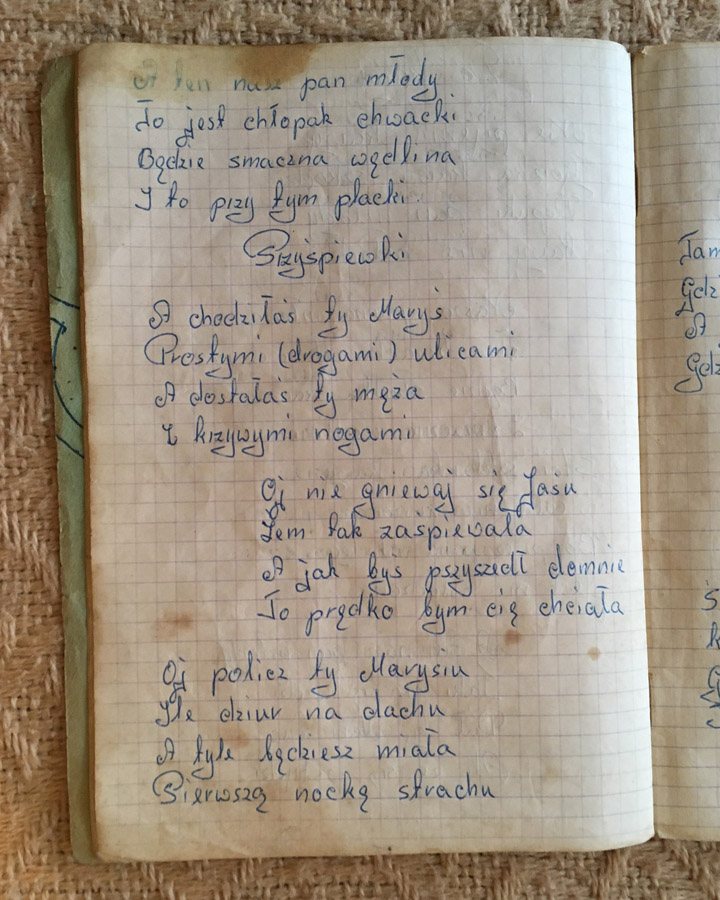 A ten nasz pan młody
To jest chłopak chwacki
Będzie smaczna wędlina
I to przy tym placki.
Przyśpiewki
A chodziłaś ty Maryś
Prostymi (drogami) ulicami
A dostałaś ty męża
Z krzywymi nogami
Oj nie gniewaj się Jasiu
Żem tak zaśpiewała
A jak byś pszyszedł domnie
To prędko bym cię chciała
Oj policz ty Marysiu
Ile dziur na dachu
A tyle będziesz miała
Pierwszą nockę strachu
Gdzi
A